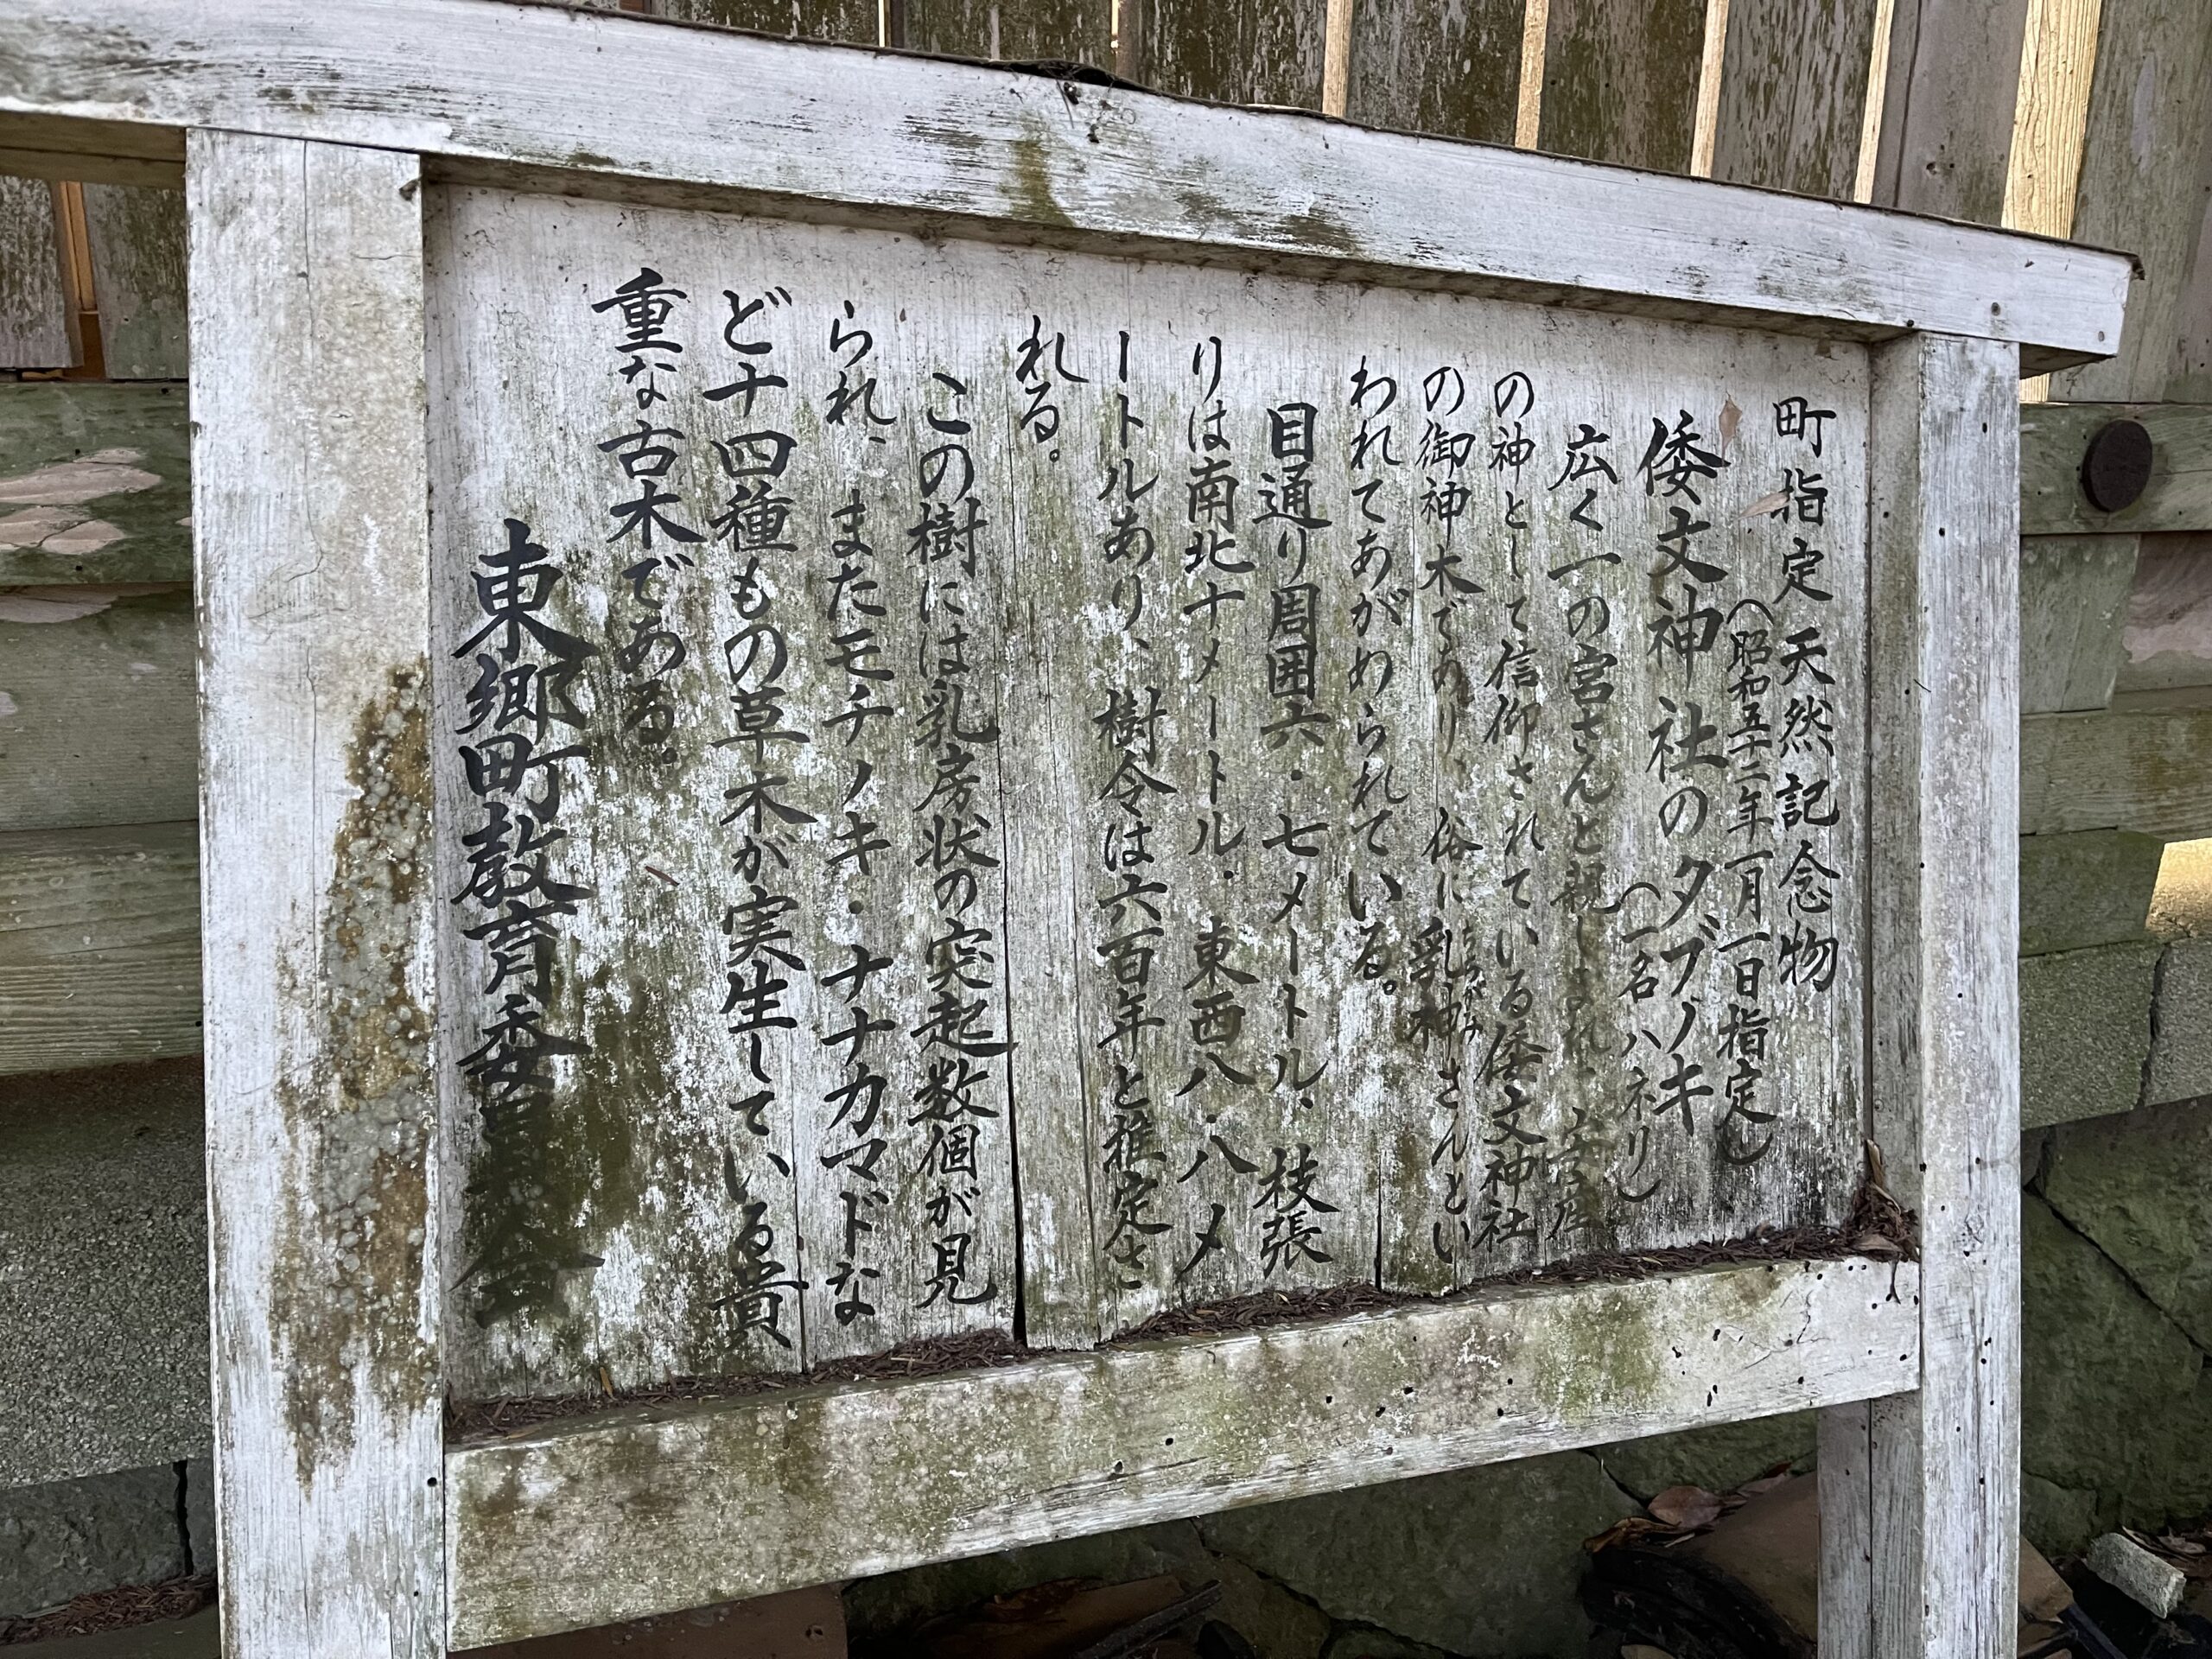 町指定天然記念物
（昭和五十二年一月一日指定）
倭文神社のタブノキ
（一名ハネリ）
広く一の宮さんと親しまれ、安産
の神として信仰されている倭文神社
の御神木であり、俗に乳神さんとい
ちちがみ
われてあがめられている。
目通り周囲六・七メートル・枝張
りは南北十メートル・東西八・八メ
ートルあり、樹令は六百年と推定さ
れる。
この樹には乳房状の突起数個が見
られ、またモチノキ・ナナカマドな
ど十四種もの草木が実生している貴
重な古木である。
東郷町教育委員会